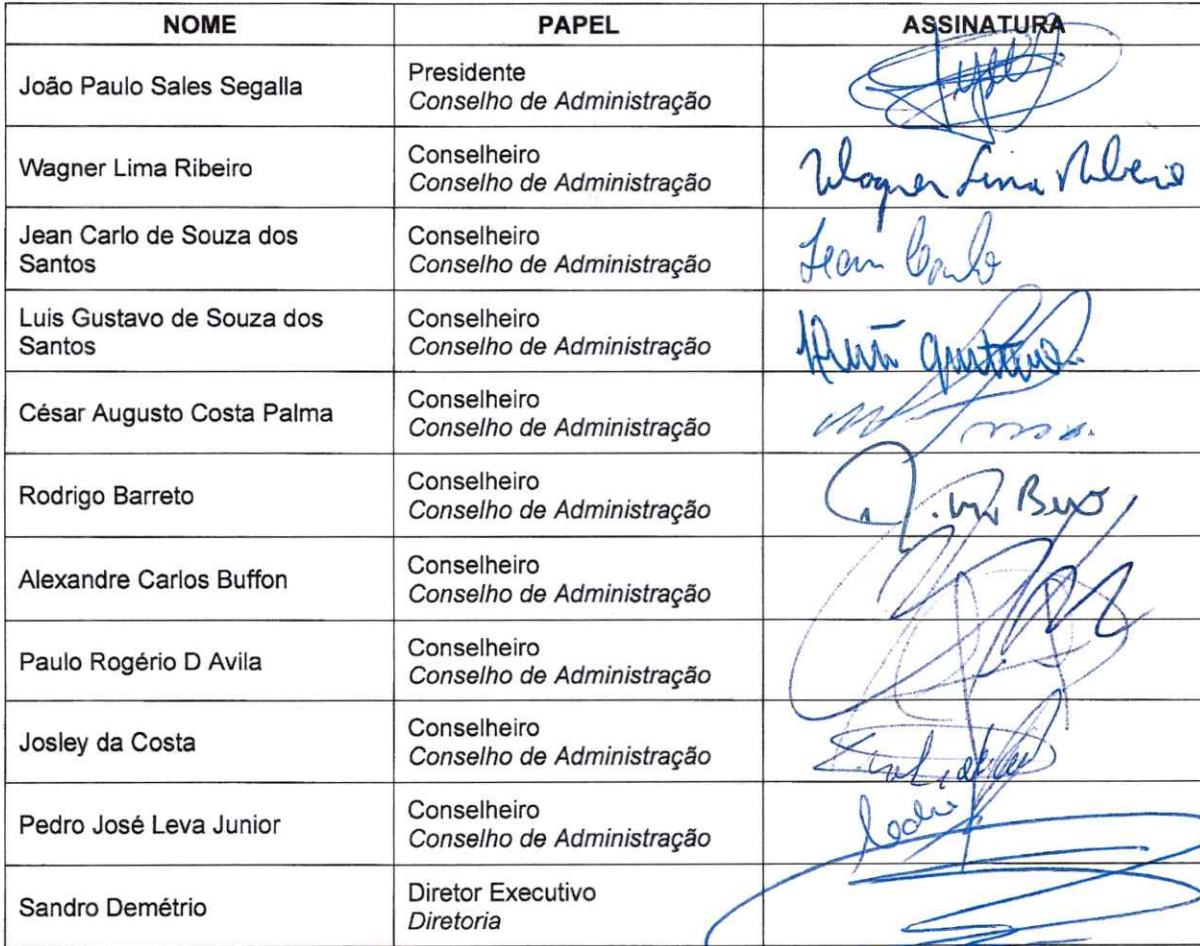 NOME PAPEL ASSINATURA
João Paulo Sales Segalla Presidente
Conselho de Administração
Wagner Lima Ribeiro Conselheiro Wagner Lima Ribeiro
Conselho de Administração
Jean Carlo de Souza dos Conselheiro Jean Carlo
Santos Conselho de Administração
Luis Gustavo de Souza dos Conselheiro Luis Gustavo
Santos Conselho de Administração
César Augusto Costa Palma Conselheiro
Conselho de Administração
Rodrigo Barreto Conselheiro
Conselho de Administração
Alexandre Carlos Buffon Conselheiro
Conselho de Administração
Paulo Rogério D Avila Conselheiro
Conselho de Administração
Josley da Costa Conselheiro
Conselho de Administração
Pedro José Leva Junior Conselheiro Pedro
Conselho de Administração
Sandro Demétrio Diretor Executivo
Diretoria